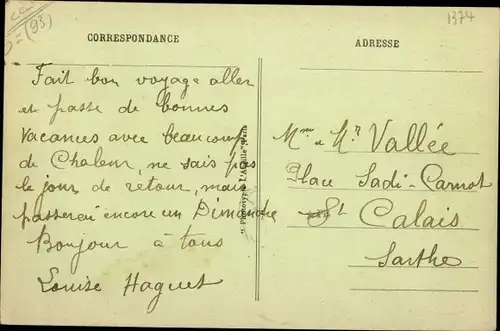 (93)
1374
CORRESPONDANCE
Fait bon voyage aller
et passe de bonnes
vacances avec beaucoup
de Chaleur, ne sais pas
le jour de retour, mais
passerai encore un Dimanche
Bonjour à tous
Louise Haguet
Phototypie "L'Abeille" Paris
ADRESSE
Mme et Mr Vallée
Place Sadi-Carnot
St Calais
Sarthe